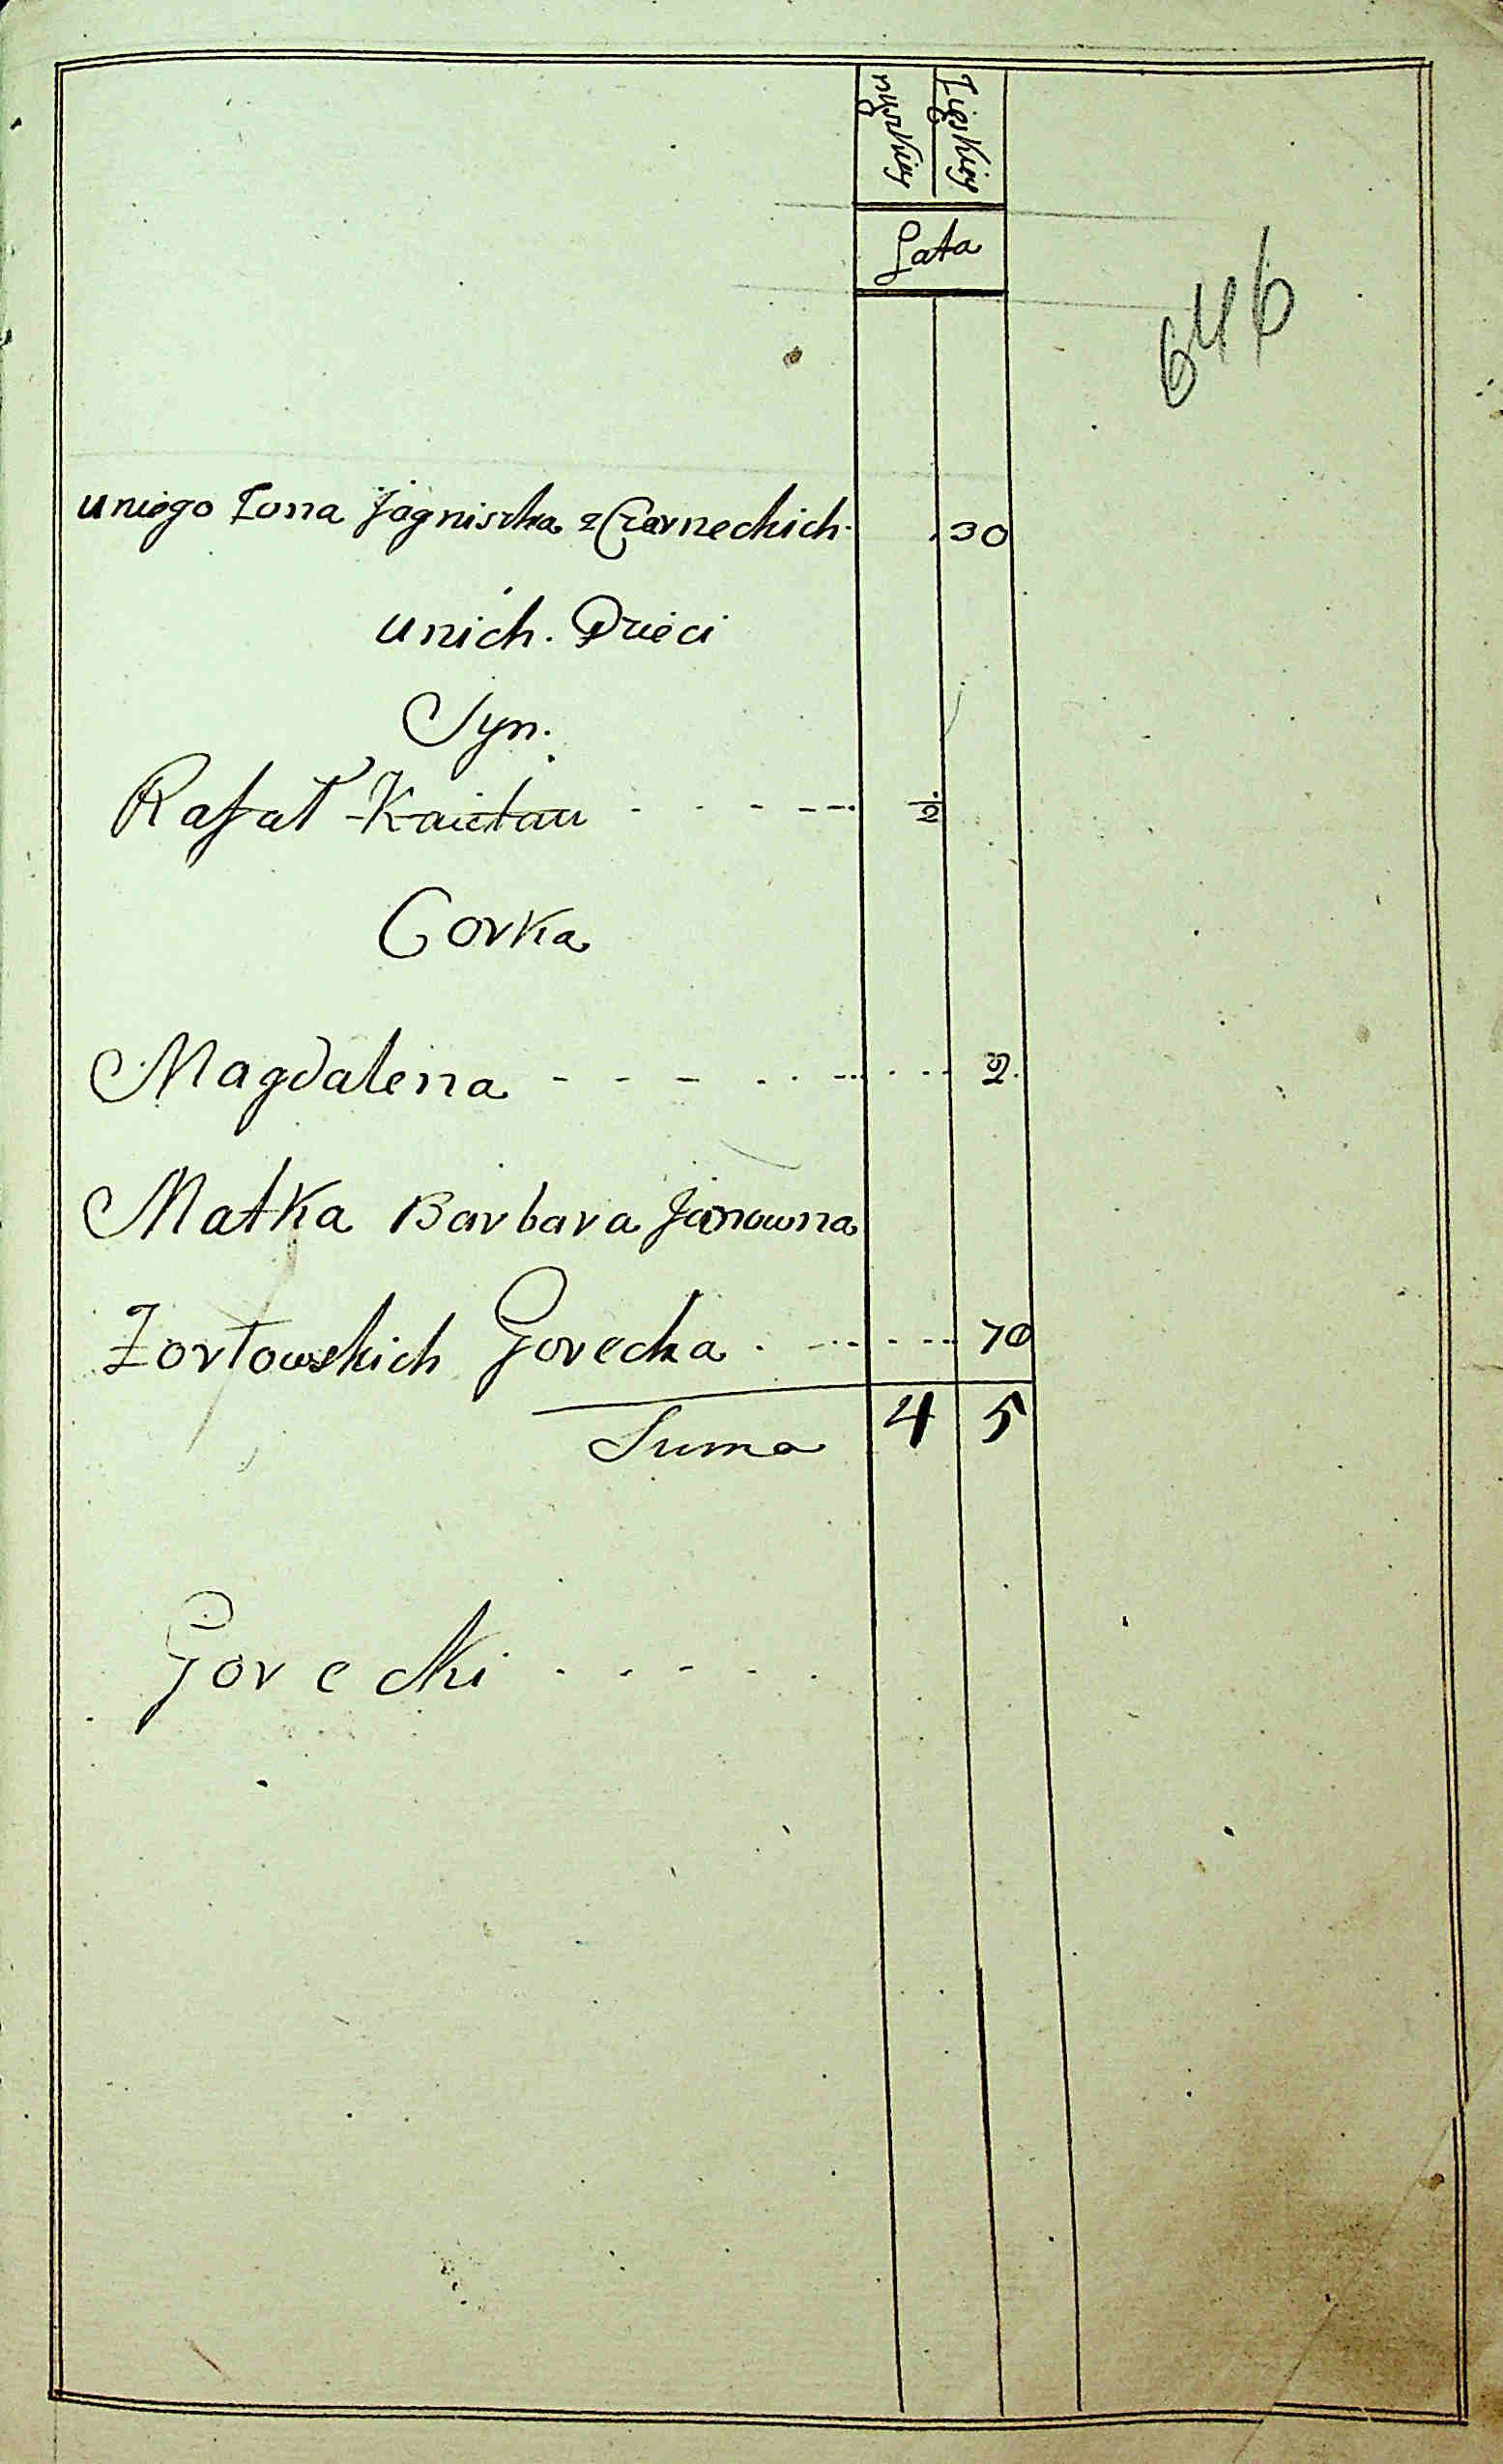 męzkiey Zięskiey
Lata
646
uniego Zona Jagniszka z Czarneckich 30
unich Dzieci
Syn.
Rafał Kaietan ½
Corka
Magdalena 2
Matka Barbara Janowna
Zortowskich Gorecka 70
Suma 4 5
Gorecki